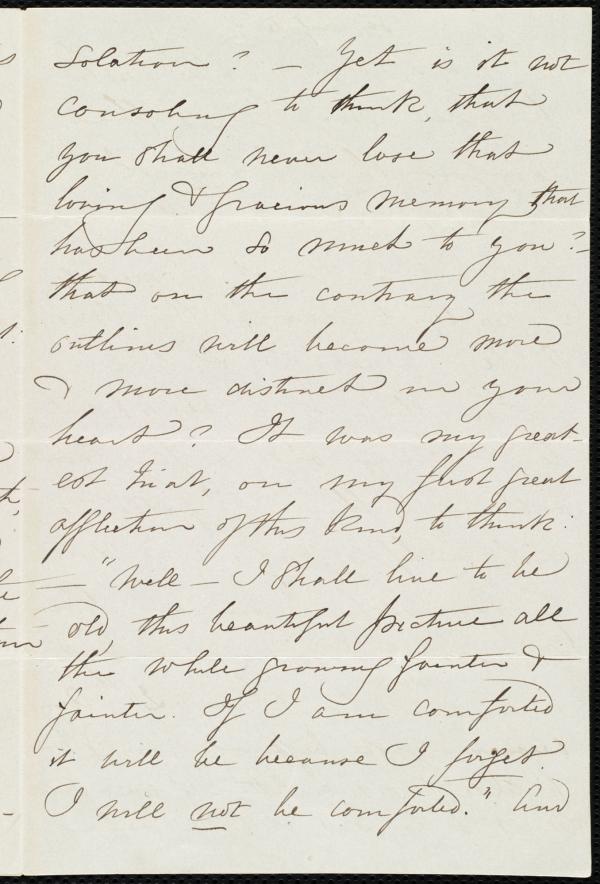 solation? — Yet is it not
consoling to think, that
you shall never lose that
loving & gracious memory that
has been so much to you? —
that on the contrary the
outlines will become more
& more distinct in your
heart? It was my great-
est trial, on my first great
affliction of this kind, to think:
— "Well — I shall live to be
old, this beautiful picture all
the while growing fainter &
fainter. If I am comforted
it will be because I forget.
I will not be comforted." And